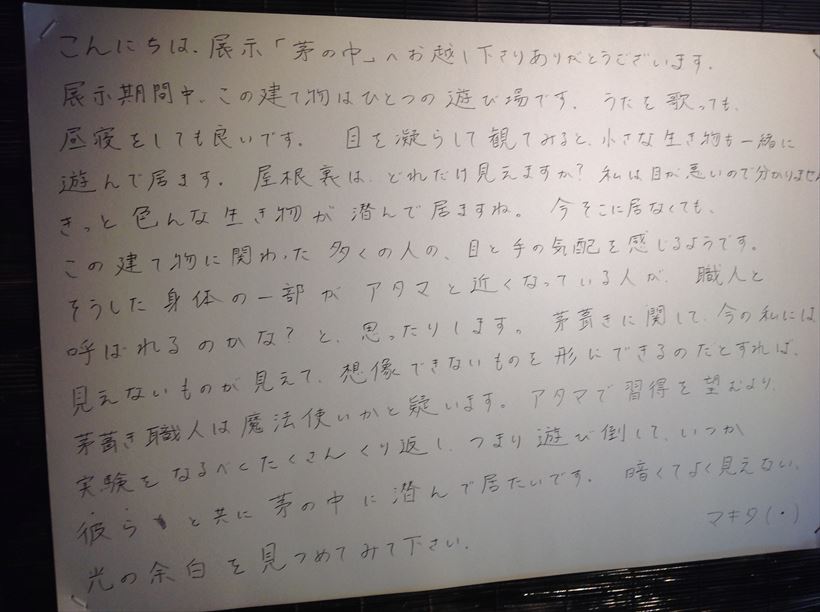 こんにちは、展示「茅の中」へお越し下さりありがとうございます。
展示期間中、この建て物はひとつの遊び場です。うたを歌っても、
昼寝をしても良いです。目を凝らして観てみると、小さな生き物も一緒に
遊んで居ます。屋根裏は、どれだけ見えますか？私は目が悪いので分かりません
きっと色んな生き物が潜んで居ますね。今そこに居なくても、
この建て物に関わった多くの人の、目と手の気配を感じるようです。
そうした身体の一部がアタマと近くなっている人が、職人と
呼ばれるのかな？と、思ったりします。茅葺きに関して、今の私には
見えないものが見えて、想像できないものを形にできるのだとすれば、
茅葺き職人は魔法使いかと疑います。アタマで習得を望むより、
実験をなるべくたくさんくり返し、つまり遊び倒して、いつか
彼らと共に茅の中に潜んで居たいです。暗くてよく見えない、
光の余白を見つめてみて下さい。
マキタ(・)